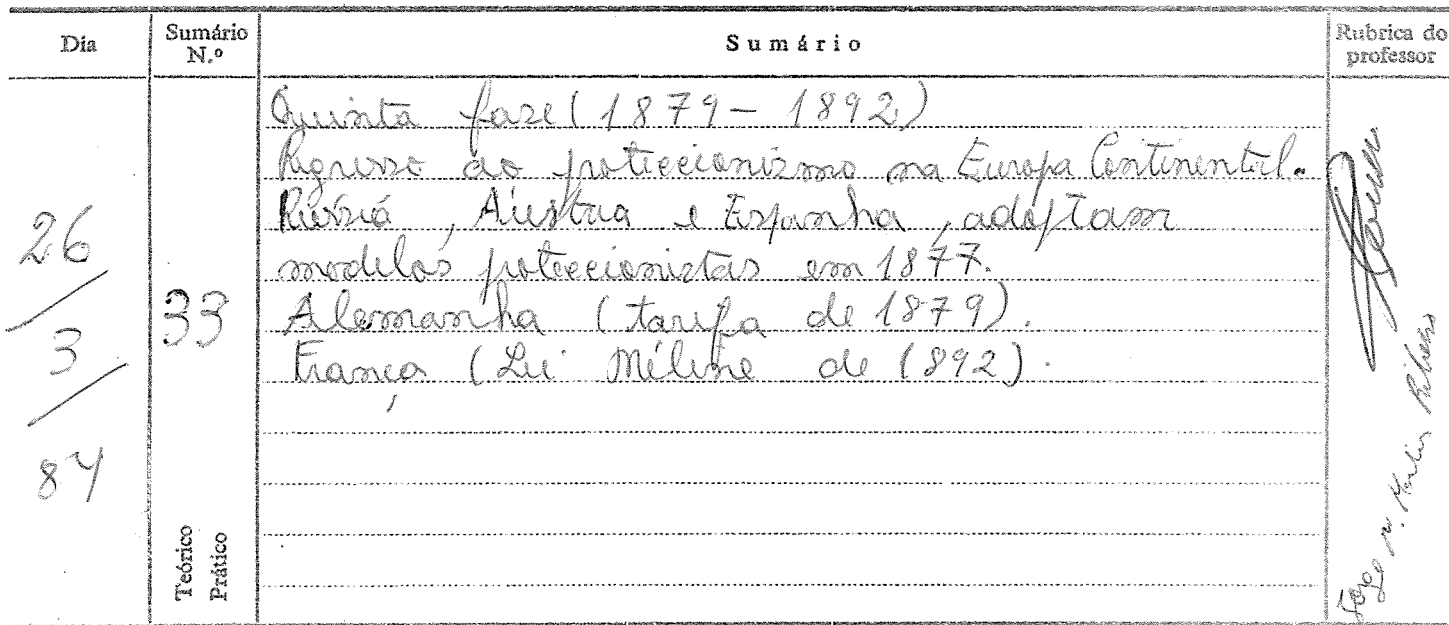 Dia
Sumário N.º
Sumário
Rubrica do professor
26
3
84
33
Teórico
Prático
Quinta fase (1879 - 1892)
Regresso ao proteccionismo na Europa Continental.
Rússia, Áustria e Espanha, adoptam
modelos proteccionistas em 1877.
Alemanha (tarifa de 1879).
França (Lei Méline de 1892).
Jorge M. Martins Ribeiro